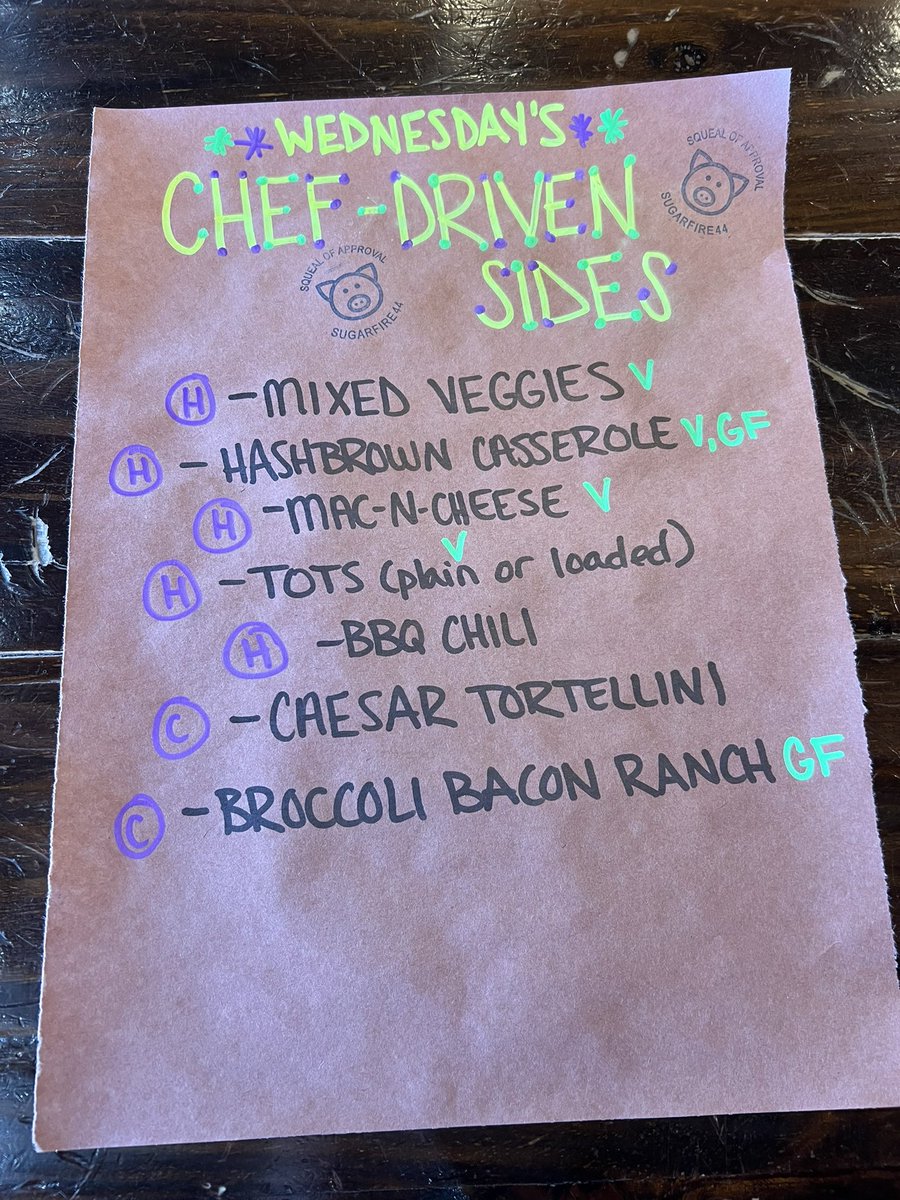 WEDNESDAY'S
CHEF-DRIVEN
SIDES
SQUEAL OF APPROVAL
SUGARFIRE44
SQUEAL OF APPROVAL
SUGARFIRE44
H -MIXED VEGGIES V
H - HASHBROWN CASSEROLE V,GF
H -MAC-N-CHEESE V
V
H -TOTS (plain or loaded)
H -BBQ CHILI
C -CAESAR TORTELLINI
C -BROCCOLI BACON RANCH GF